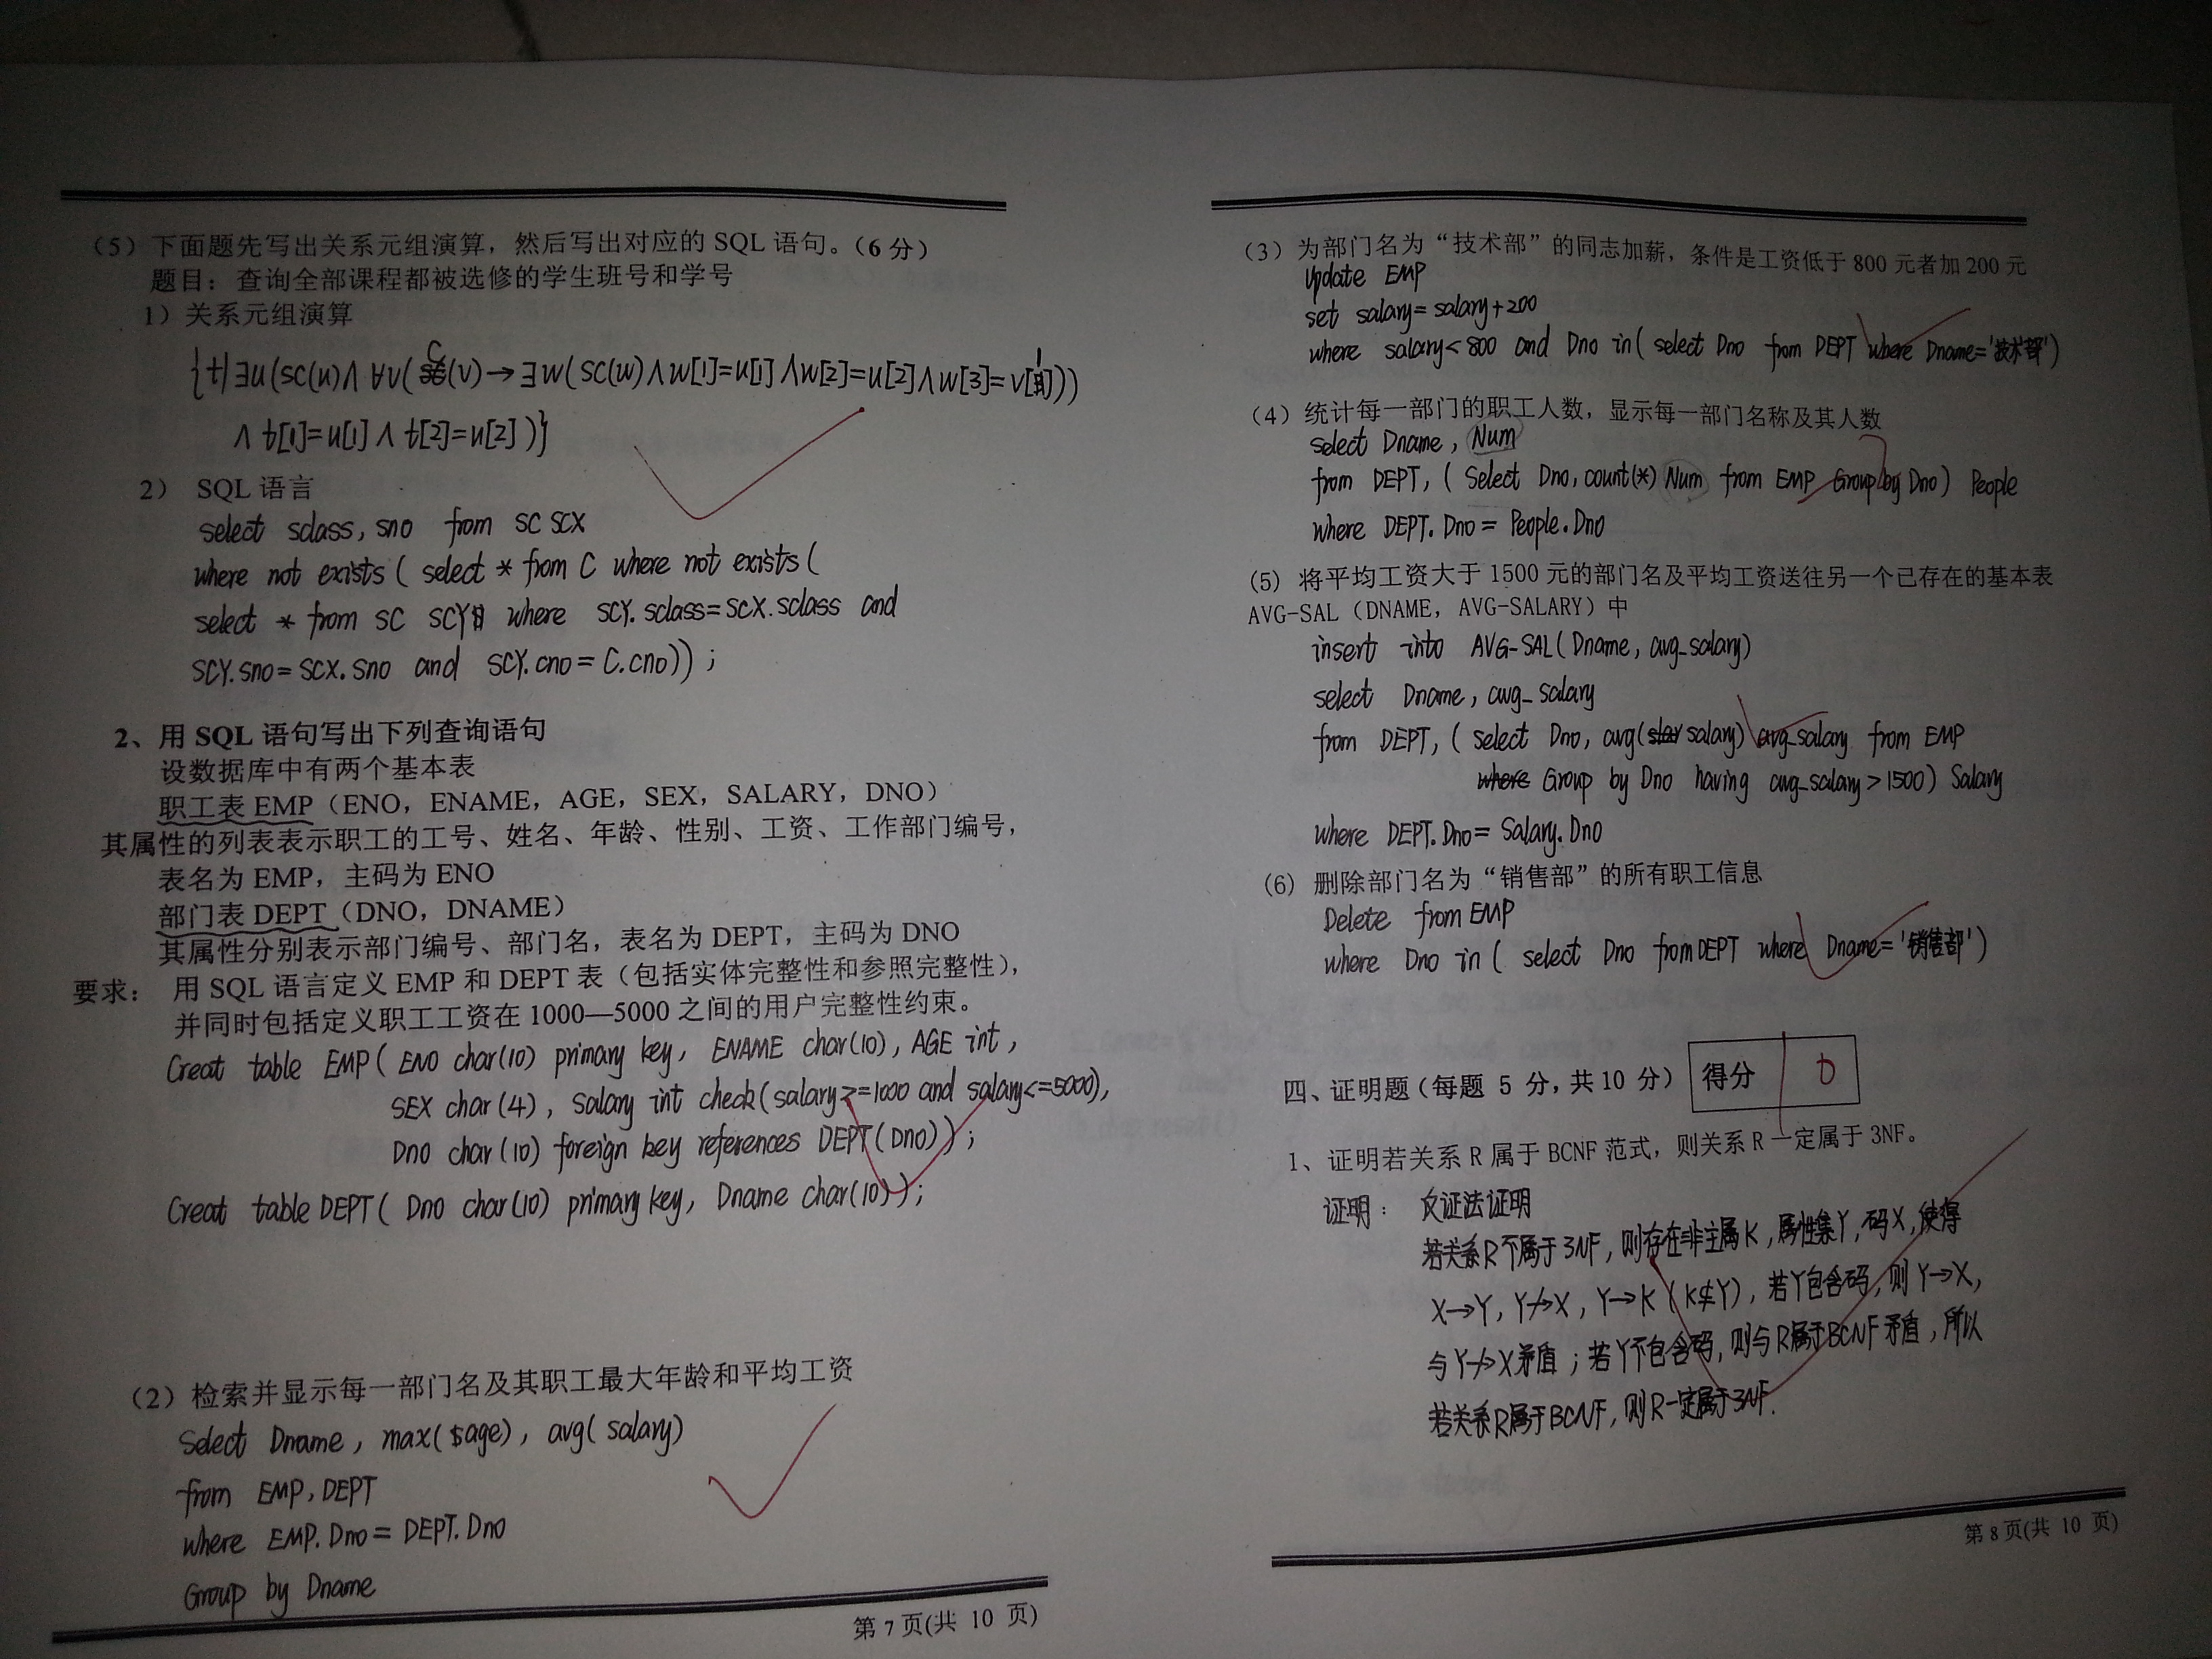 （5）下面题先写出关系元组演算，然后写出对应的 SQL 语句。（6 分）
题目：查询全部课程都被选修的学生班号和学号
1）关系元组演算
{t|∃u(SC(u)∧∀v(C(v)→∃w(SC(w)∧w[1]=u[1]∧w[2]=u[2]∧w[3]=v[1]))
∧t[1]=u[1]∧t[2]=u[2])}
2） SQL 语言
select sclass, sno from SC SCX
where not exists ( select * from C where not exists (
select * from SC SCY where SCY.sclass=SCX.sclass and
SCY.sno=SCX.sno and SCY.cno=C.cno)) ;
2、用 SQL 语句写出下列查询语句
设数据库中有两个基本表
职工表 EMP（ENO，ENAME，AGE，SEX，SALARY，DNO）
其属性的列表表示职工的工号、姓名、年龄、性别、工资、工作部门编号，
表名为 EMP，主码为 ENO
部门表 DEPT（DNO，DNAME）
其属性分别表示部门编号、部门名，表名为 DEPT，主码为 DNO
要求： 用 SQL 语言定义 EMP 和 DEPT 表（包括实体完整性和参照完整性），
并同时包括定义职工工资在 1000—5000 之间的用户完整性约束。
Creat table EMP( ENO char(10) primary key, ENAME char(10), AGE int,
SEX char(4), Salary int check(salary>=1000 and salary<=5000),
Dno char(10) foreign key references DEPT(Dno));
Creat table DEPT( Dno char(10) primary key, Dname char(10));
（2）检索并显示每一部门名及其职工最大年龄和平均工资
Select Dname, max(age), avg(salary)
from EMP, DEPT
where EMP.Dno = DEPT.Dno
Group by Dname
第 7 页(共 10 页)
（3）为部门名为“技术部”的同志加薪，条件是工资低于 800 元者加 200 元
Update EMP
set salary=salary+200
where salary<800 and Dno in( select Dno from DEPT where Dname='技术部')
（4）统计每一部门的职工人数，显示每一部门名称及其人数
select Dname, Num
from DEPT, ( Select Dno, count(*) Num from EMP Group by Dno) People
where DEPT.Dno = People.Dno
（5）将平均工资大于 1500 元的部门名及平均工资送往另一个已存在的基本表
AVG-SAL（DNAME，AVG-SALARY）中
insert into AVG-SAL(Dname, avg_salary)
select Dname, avg_salary
from DEPT, ( select Dno, avg(salary) avg_salary from EMP
Group by Dno having avg_salary>1500) Salary
where DEPT.Dno= Salary.Dno
（6）删除部门名为“销售部”的所有职工信息
Delete from EMP
where Dno in( select Dno from DEPT where Dname='销售部')
四、证明题（每题 5 分，共 10 分） 得分
1、证明若关系 R 属于 BCNF 范式，则关系 R 一定属于 3NF。
证明： 反证法证明
若关系R不属于3NF，则存在非主属K，属性集Y，码X，使得
X→Y，Y↛X，Y→K（K∉Y），若Y包含码，则Y→X，
与Y↛X矛盾；若Y不包含码，则与R属于BCNF矛盾，所以
若关系R属于BCNF，则R一定属于3NF.
第 8 页(共 10 页)